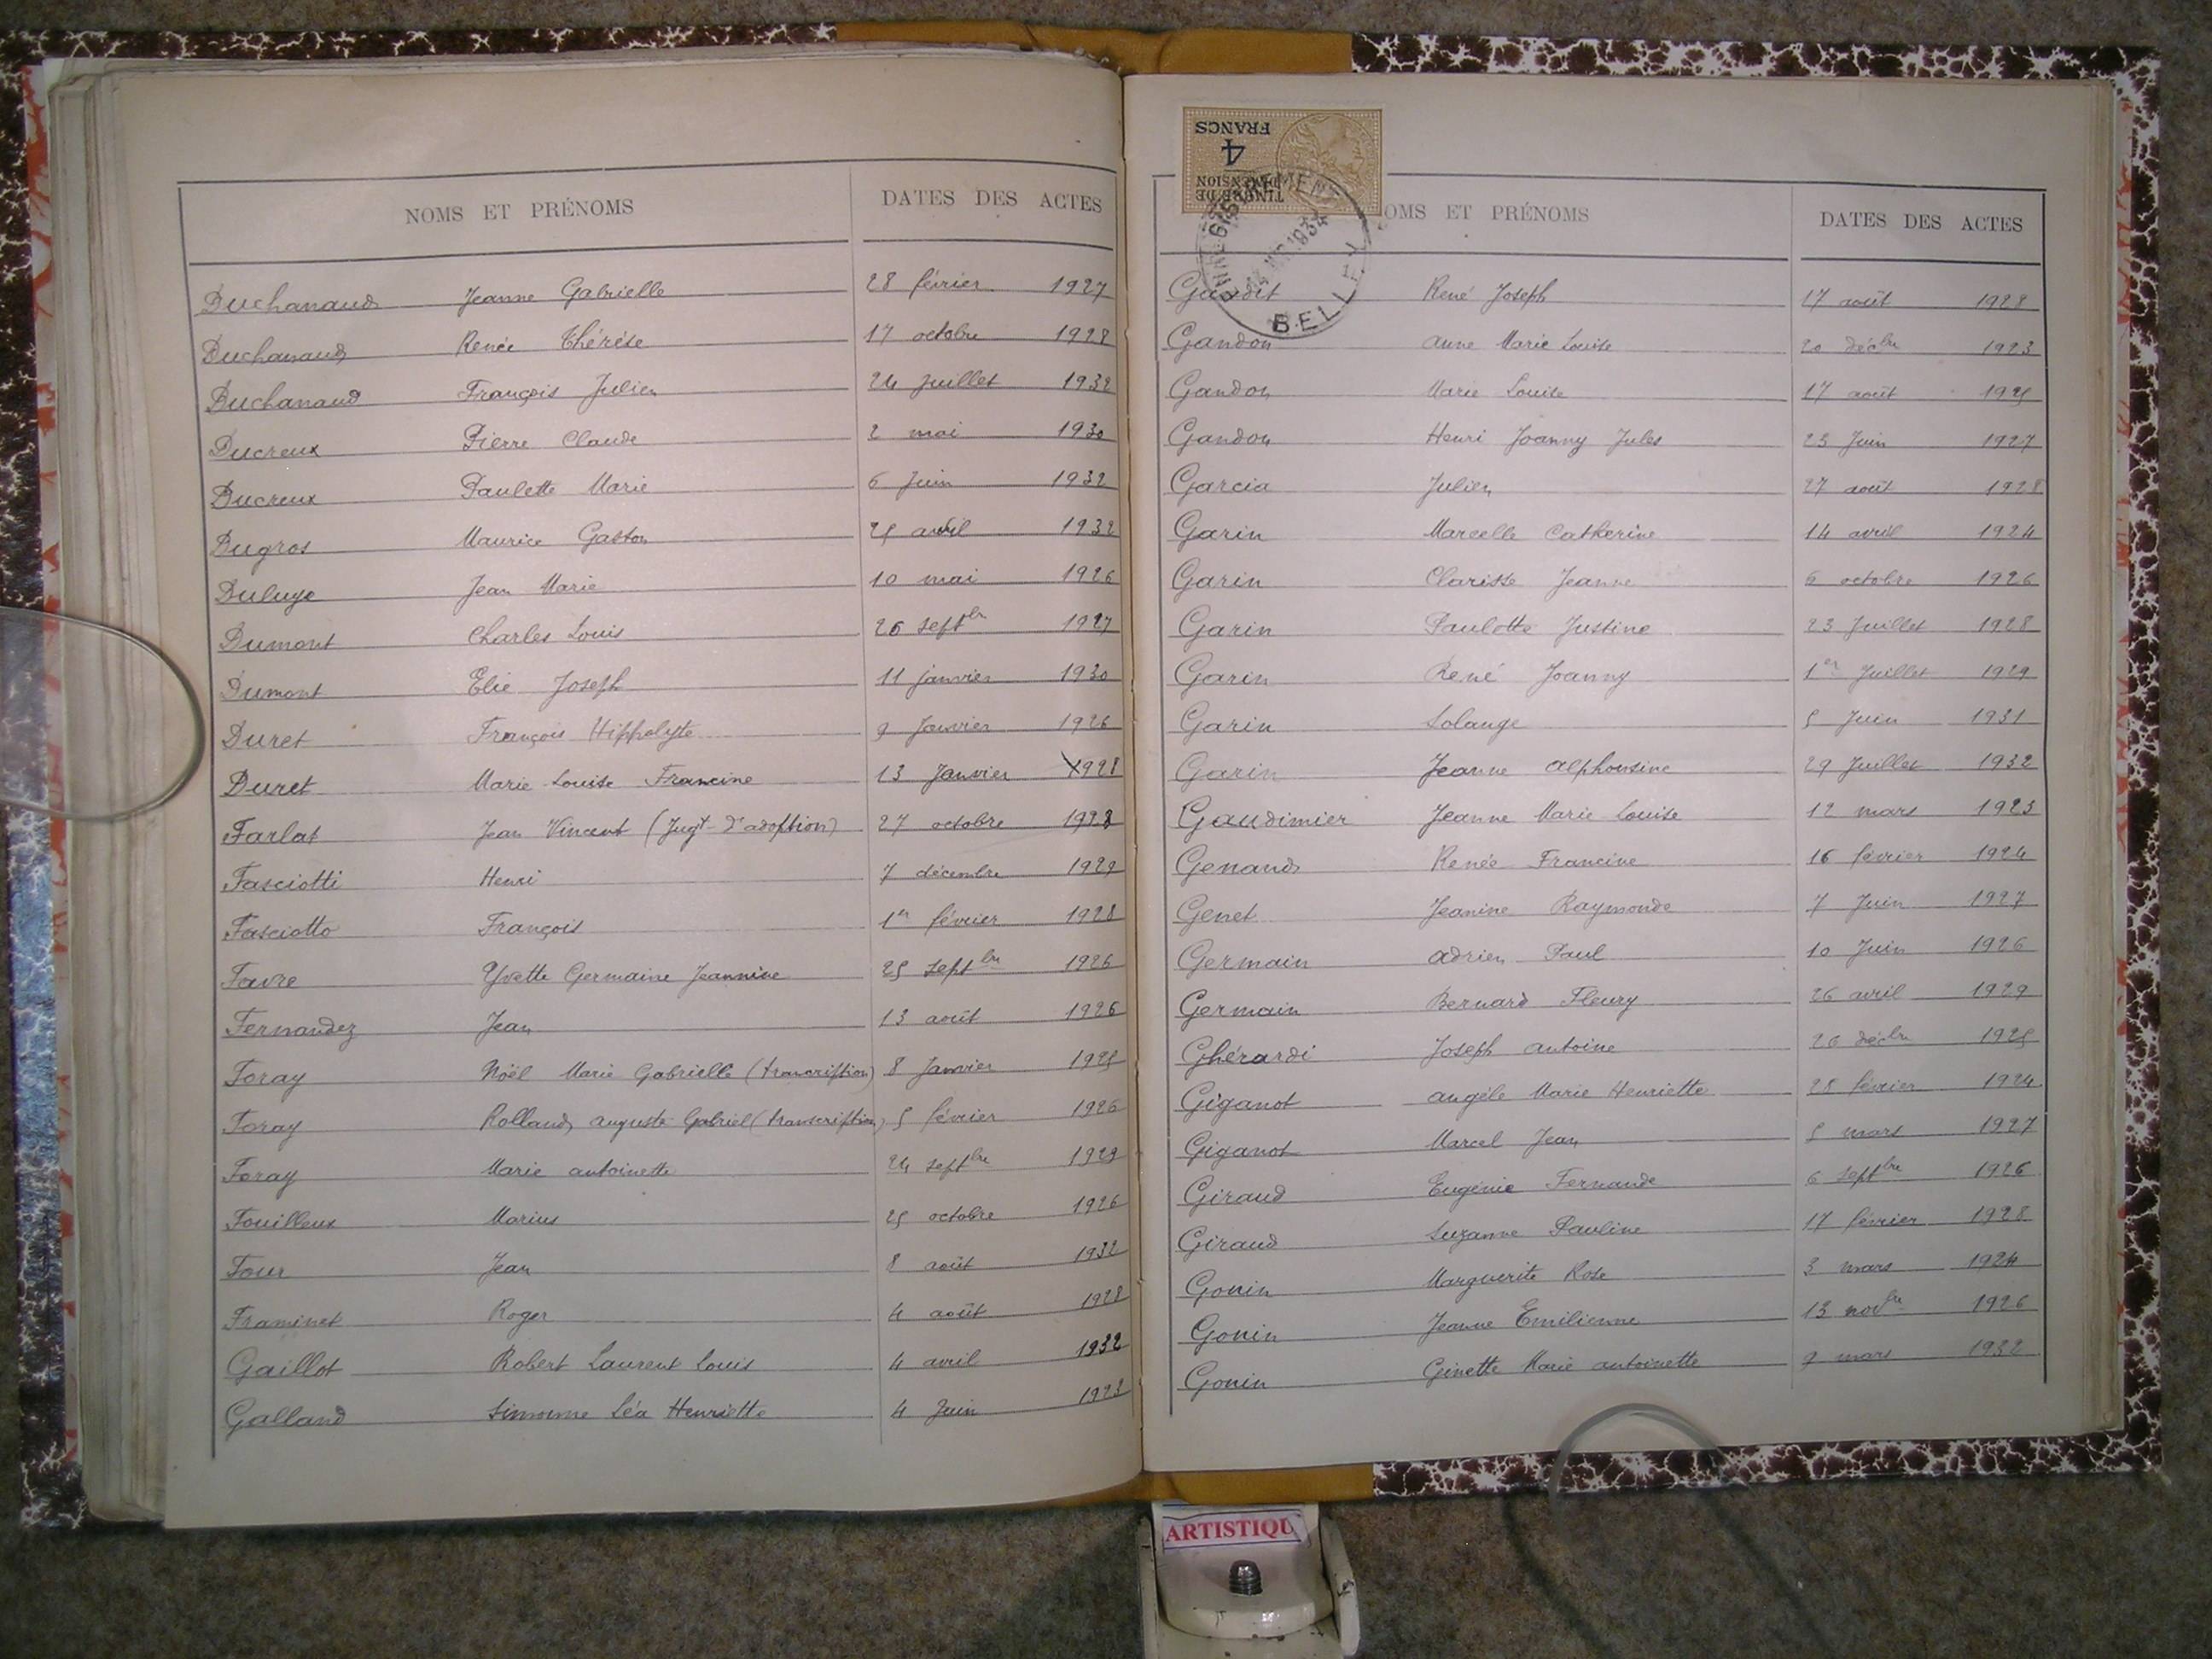 NOMS ET PRÉNOMS DATES DES ACTES
Duchanaud Jeanne Gabrielle 28 février 1927
Duchanaud Renée Thérèse 17 octobre 1928
Duchanaud François Julien 24 juillet 1932
Ducreux Pierre Claude 2 mai 1930
Ducreux Paulette Marie 6 Juin 1932
Dugros Maurice Gaston 25 avril 1932
Duluye Jean Marie 10 mai 1926
Dumont Charles Louis 26 septbre 1927
Dumont Elie Joseph 11 janvier 1930
Duret François Hippolyte 9 Janvier 1926
Duret Marie Louise Francine 13 Janvier 1928
Farlat Jean Vincent (Jugt d'adoption) 27 octobre 1928
Fasciotti Henri 7 décembre 1929
Fasciotto François 1er février 1928
Favre Yvette Germaine Jeannine 25 septbre 1926
Fernandez Jean 13 août 1926
Foray Noël Marie Gabrielle (transcription) 8 Janvier 1925
Foray Rolland auguste Gabriel (transcription) 5 février 1926
Foray Marie antoinette 24 septbre 1929
Fouilleux Marius 25 octobre 1926
Four Jean 8 août 1932
Framinet Roger 4 août 1928
Gaillot Robert Laurent Louis 4 avril 1932
Galland Simonne Léa Henriette 4 Juin 1923
FRANCS
4
TIMBRE DE
DIMENSION
1934
BELL
OMS ET PRÉNOMS DATES DES ACTES
René Joseph 17 août 1928
Gandon anne Marie Louise 20 décbre 1923
Gandon Marie Louise 17 août 1925
Gandon Henri Joanny Jules 23 Juin 1927
Garcia Julien 27 août 1928
Garin Marcelle Catherine 14 avril 1924
Garin Clarisse Jeanne 6 octobre 1926
Garin Paulette Justine 23 Juillet 1928
Garin René Joanny 1er Juillet 1929
Garin Solange 5 Juin 1931
Garin Jeanne alphonsine 29 Juillet 1932
Gaudimier Jeanne Marie Louise 12 mars 1923
Genand Renée Francine 16 février 1924
Genet Jeanine Raymonde 7 Juin 1927
Germain adrien Paul 10 Juin 1926
Germain Bernard Fleury 26 avril 1929
Ghérardi Joseph antoine 26 décbre 1925
Giganot angèle Marie Henriette 28 février 1924
Giganot Marcel Jean 5 mars 1927
Giraud Eugénie Fernande 6 septbre 1926
Giraud Suzanne Pauline 17 février 1928
Gonin Marguerite Rose 3 mars 1924
Gonin Jeanne Emilienne 13 novbre 1926
Gonin Ginette Marie antoinette 9 mars 1932
ARTISTIQU